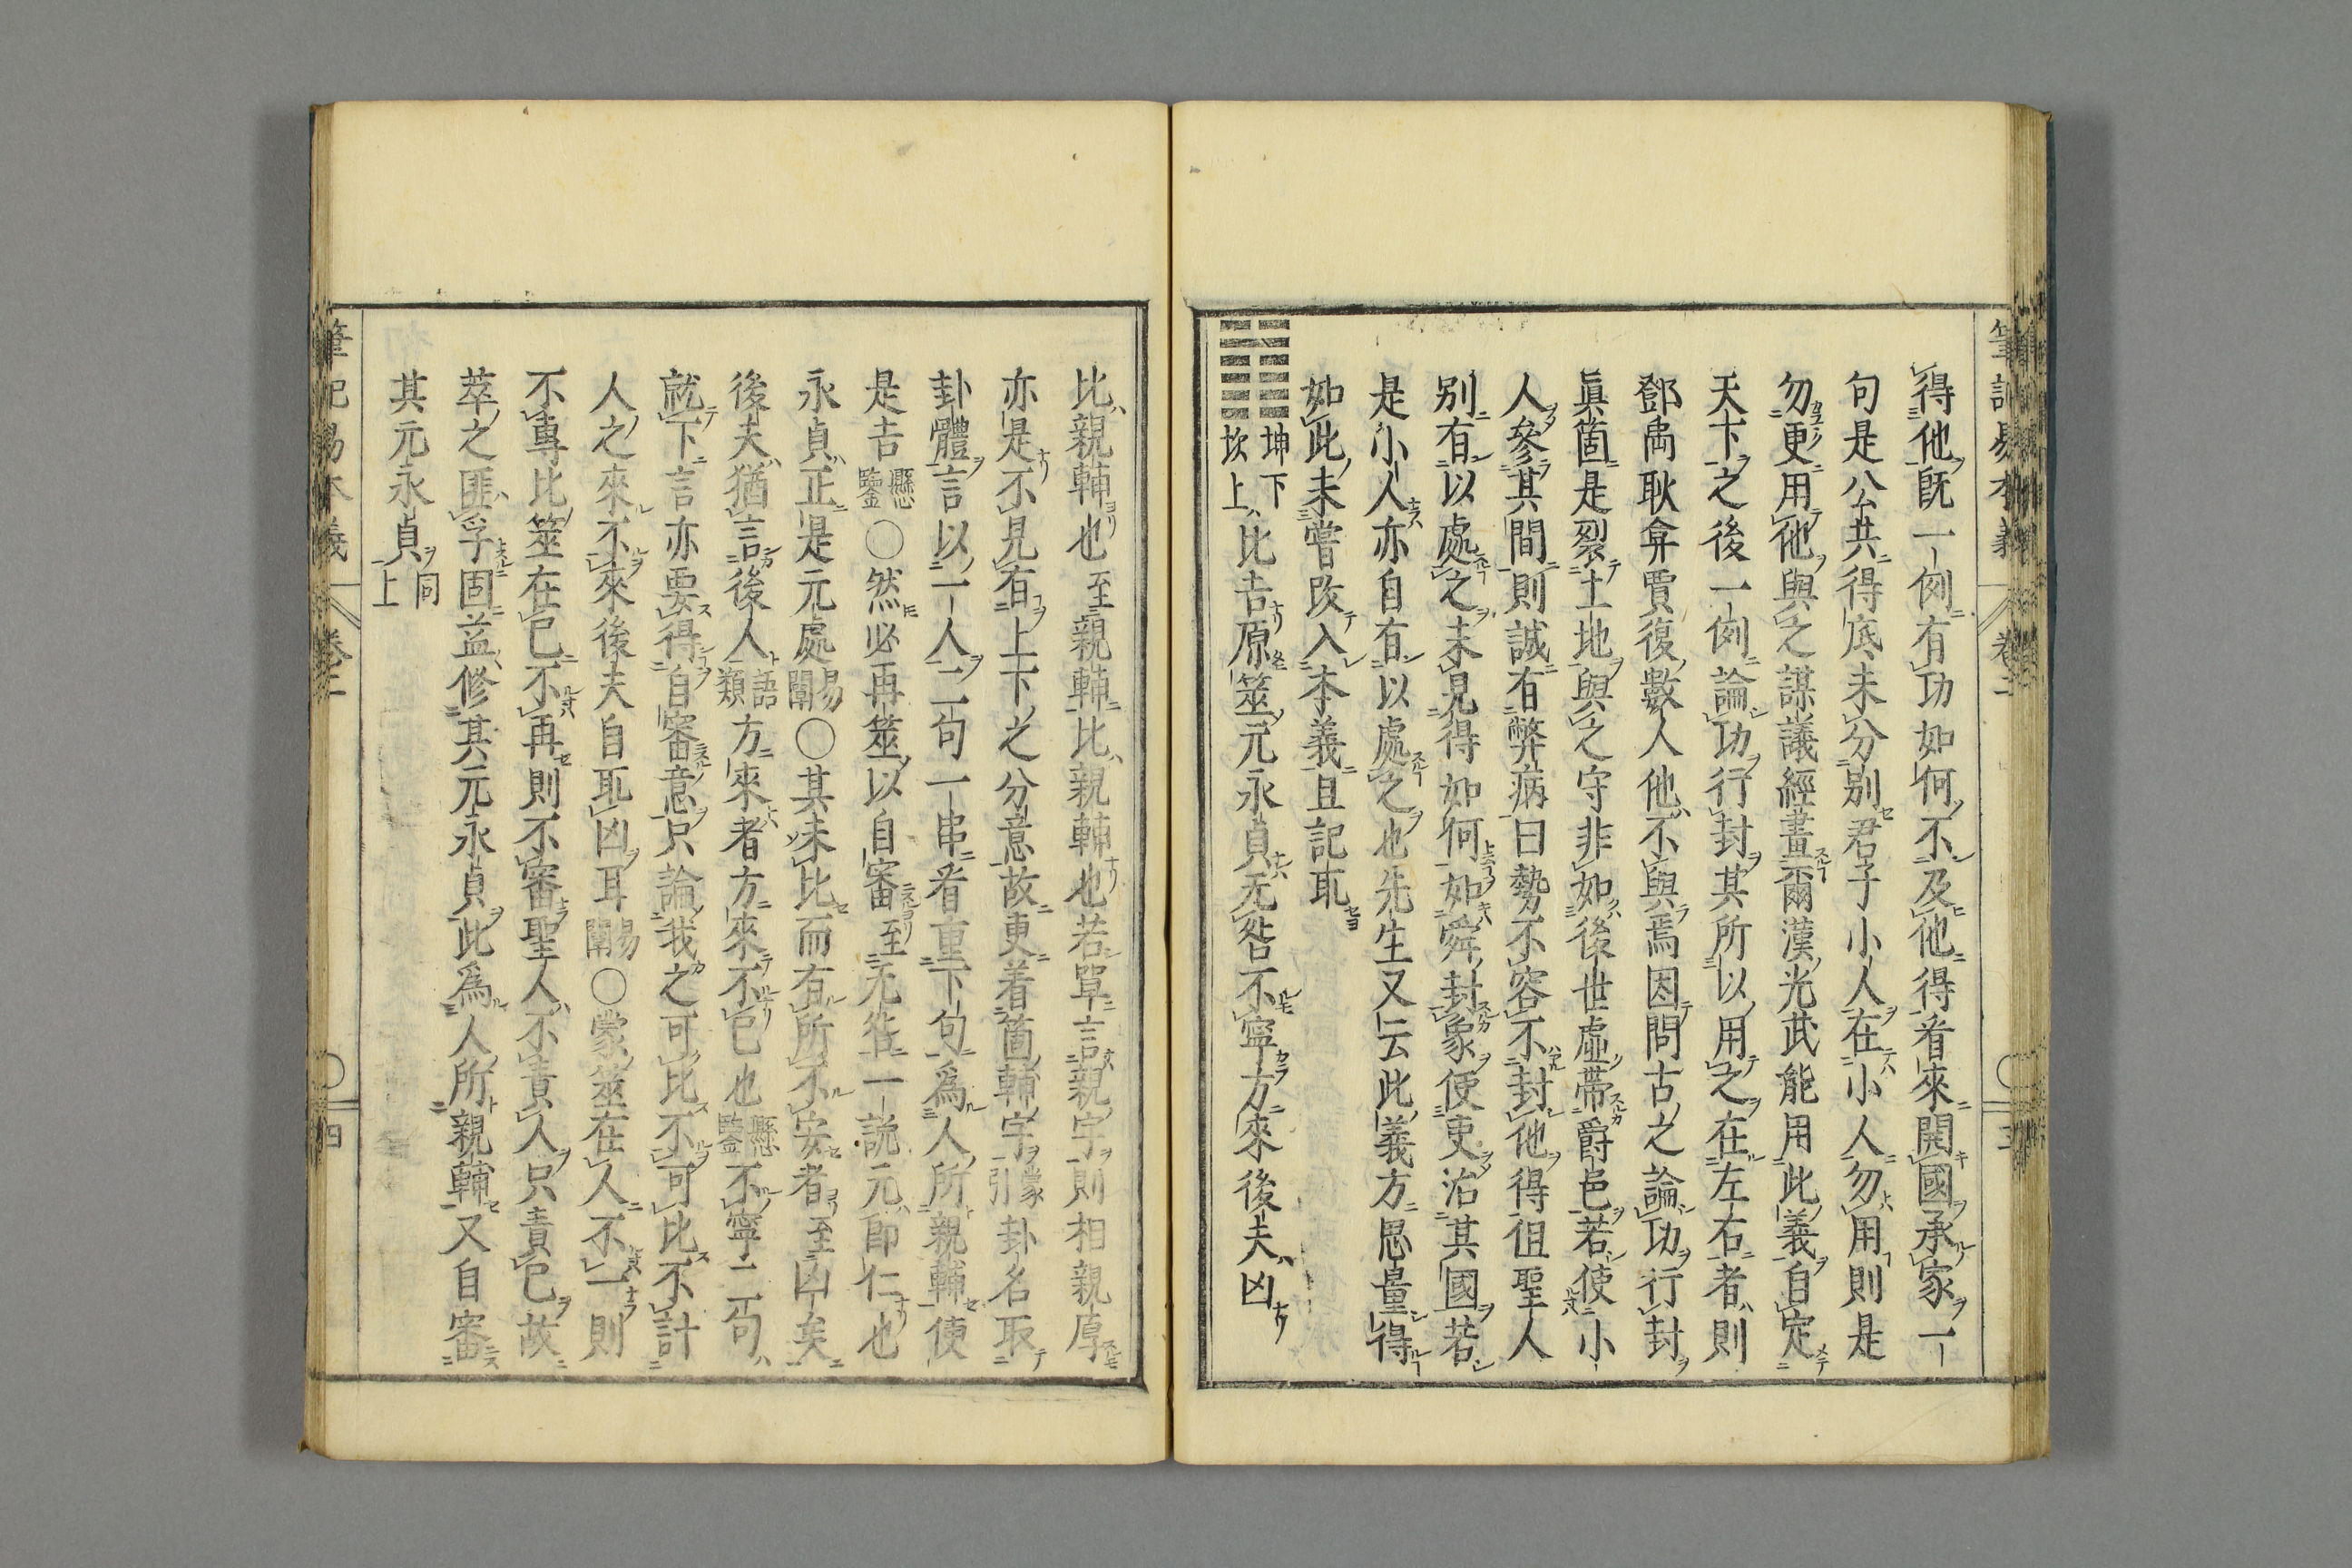 筆記易本義 卷二 三
得他既一例有功如何不及他得看來開國承家一
句是公共得底未分別君子小人在小人勿用則是
勿更用他與之謀議經畫爾漢光武能用此義自定
天下之後一例論功行封其所以用之在左右者則
鄧禹耿弇賈復數人他不與焉因問古之論功行封
眞箇是裂土地與之守非如後世虛帶爵邑若使小
人參其間則誠有弊病曰勢不容不封他得但聖人
別有以處之未見得如何如舜封象便吏治其國若
是小人亦自有以處之也先生又云此義方思量得
如此未嘗改入本義且記耴
坤下
坎上
比吉原筮元永貞无咎不寧方來後夫凶
比親輔也至親輔比親輔也若單言親字則相親厚
亦是不見有上下之分意故更着箇輔字蒙引卦名取
卦體言以一人二句一串看重下句爲人所親輔使
是吉懸鑒○然必再筮以自審至无咎一說元卽仁也
永貞正是元處易闡○其未比而有所不安者至凶矣
後夫猶言後人語類方來者方來不已也懸鑒不寧二句
就下言亦要得自審意只論我之可比不可比不計
人之來不來後夫自耴凶耳易闡○蒙筮在人不一則
不專比筮在已不再則不審聖人不責人只責已故
萃之匪孚固益修其元永貞此爲人所親輔又自審
其元永貞同上
筆記易本義 卷二 四